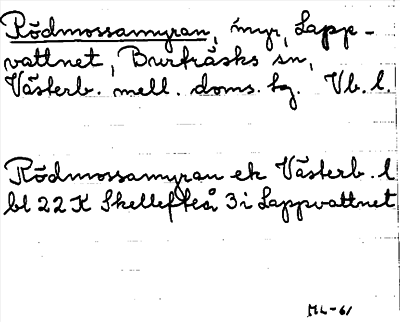 Rödmossamyran, myr, Lapp-
vattnet, Burträsks sn,
Västerb. mell. doms. tg. Vb. l.
Rödmossamyran ek Västerb. l
bl 22 K Skellefteå 3 i Lappvattnet
ML-61